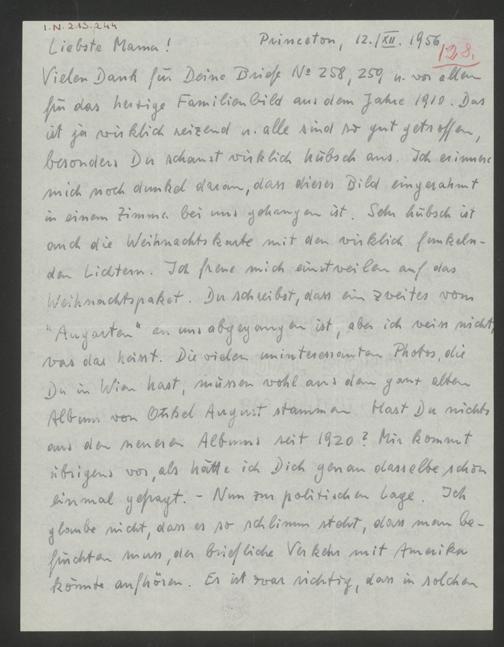 I.N. 213.244
Liebste Mama! Princeton, 12./XII. 1956
128.
Vielen Dank für Deine Briefe No 258, 259 u. vor allem
für das herzige Familienbild aus dem Jahre 1910. Das
ist ja wirklich reizend u. alle sind so gut getroffen,
besonders Du schaust wirklich hübsch aus. Ich erinnere
mich noch dunkel daran, dass dieses Bild eingerahmt
in einem Zimmer bei uns gehangen ist. Sehr hübsch ist
auch die Weihnachtskarte mit den wirklich funkeln-
den Lichtern. Ich freue mich einstweilen auf das
Weihnachtspaket. Du schreibst, dass ein zweites vom
"Augarten" an uns abgegangen ist, aber ich weiss nicht,
was das heisst. Die vielen uninteressanten Photos, die
Du in Wien hast, müssen wohl aus dem ganz alten
Album von Onkel August stammen. Hast Du nichts
aus den neueren Albums seit 1920? Mir kommt
übrigens vor, als hätte ich Dich genau dasselbe schon
einmal gefragt. - Nun zur politischen Lage. Ich
glaube nicht, dass es so schlimm steht, dass man be-
fürchten muss, der briefliche Verkehr mit Amerika
könnte aufhören. Es ist zwar richtig, dass in solchen